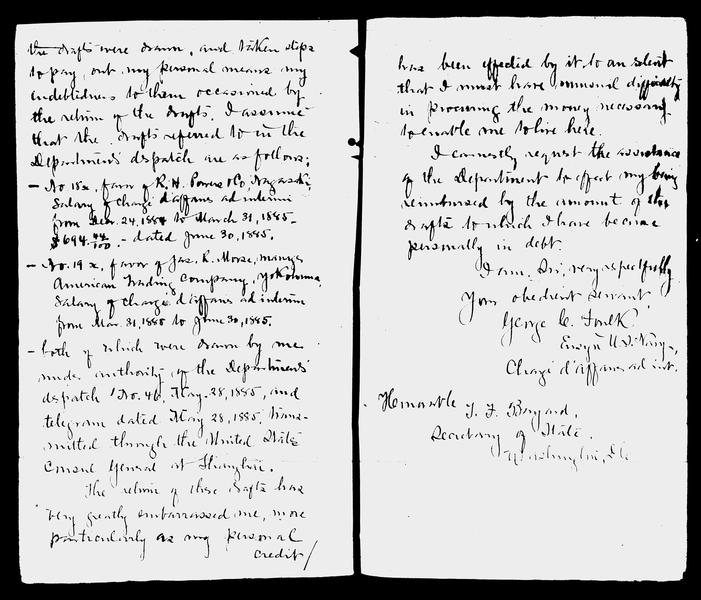 the drafts were drawn, and taken steps
to pay, out my personal means my
indebtedness to them occasioned by
the return of the drafts. I assume
that the drafts referred to in the
Department's despatch are as follows:
– No 18x, favor of R. H. Powers & Co, Nagasaki,
Salary of Chargé d'affaires ad interim
from Dec. 24, 1884 to March 31, 1885 –
$694.44/100. – dated June 30, 1885.
– No. 19x, favor of Jas. R. Morse, manager
American Trading Company, Yokohama,
Salary of Chargé d'affaires ad interim
from Mar. 31, 1885 to June 30, 1885.
– both of which were drawn by me
under authority of the Department's
despatch No. 46, May 28, 1885, and
telegram dated May 28, 1885, trans-
mitted through the United States
Consul General at Shanghai.
The return of these drafts has
very greatly embarrassed me, more
particularly as my personal
credit/
has been effected by it to an extent
that I must have unusual difficulty
in procuring the money necessary
to enable me to live here.
I earnestly request the assistance
of the Department to effect my being
reimbursed by the amount of the
drafts to which I have become
personally in debt.
I am, Sir, very respectfully
Your obedient servant,
George C. Foulk.
Ensign U.S. Navy,
Chargé d'affaires ad int.
Honorable T. F. Bayard,
Secretary of State.
Washington, D.C.